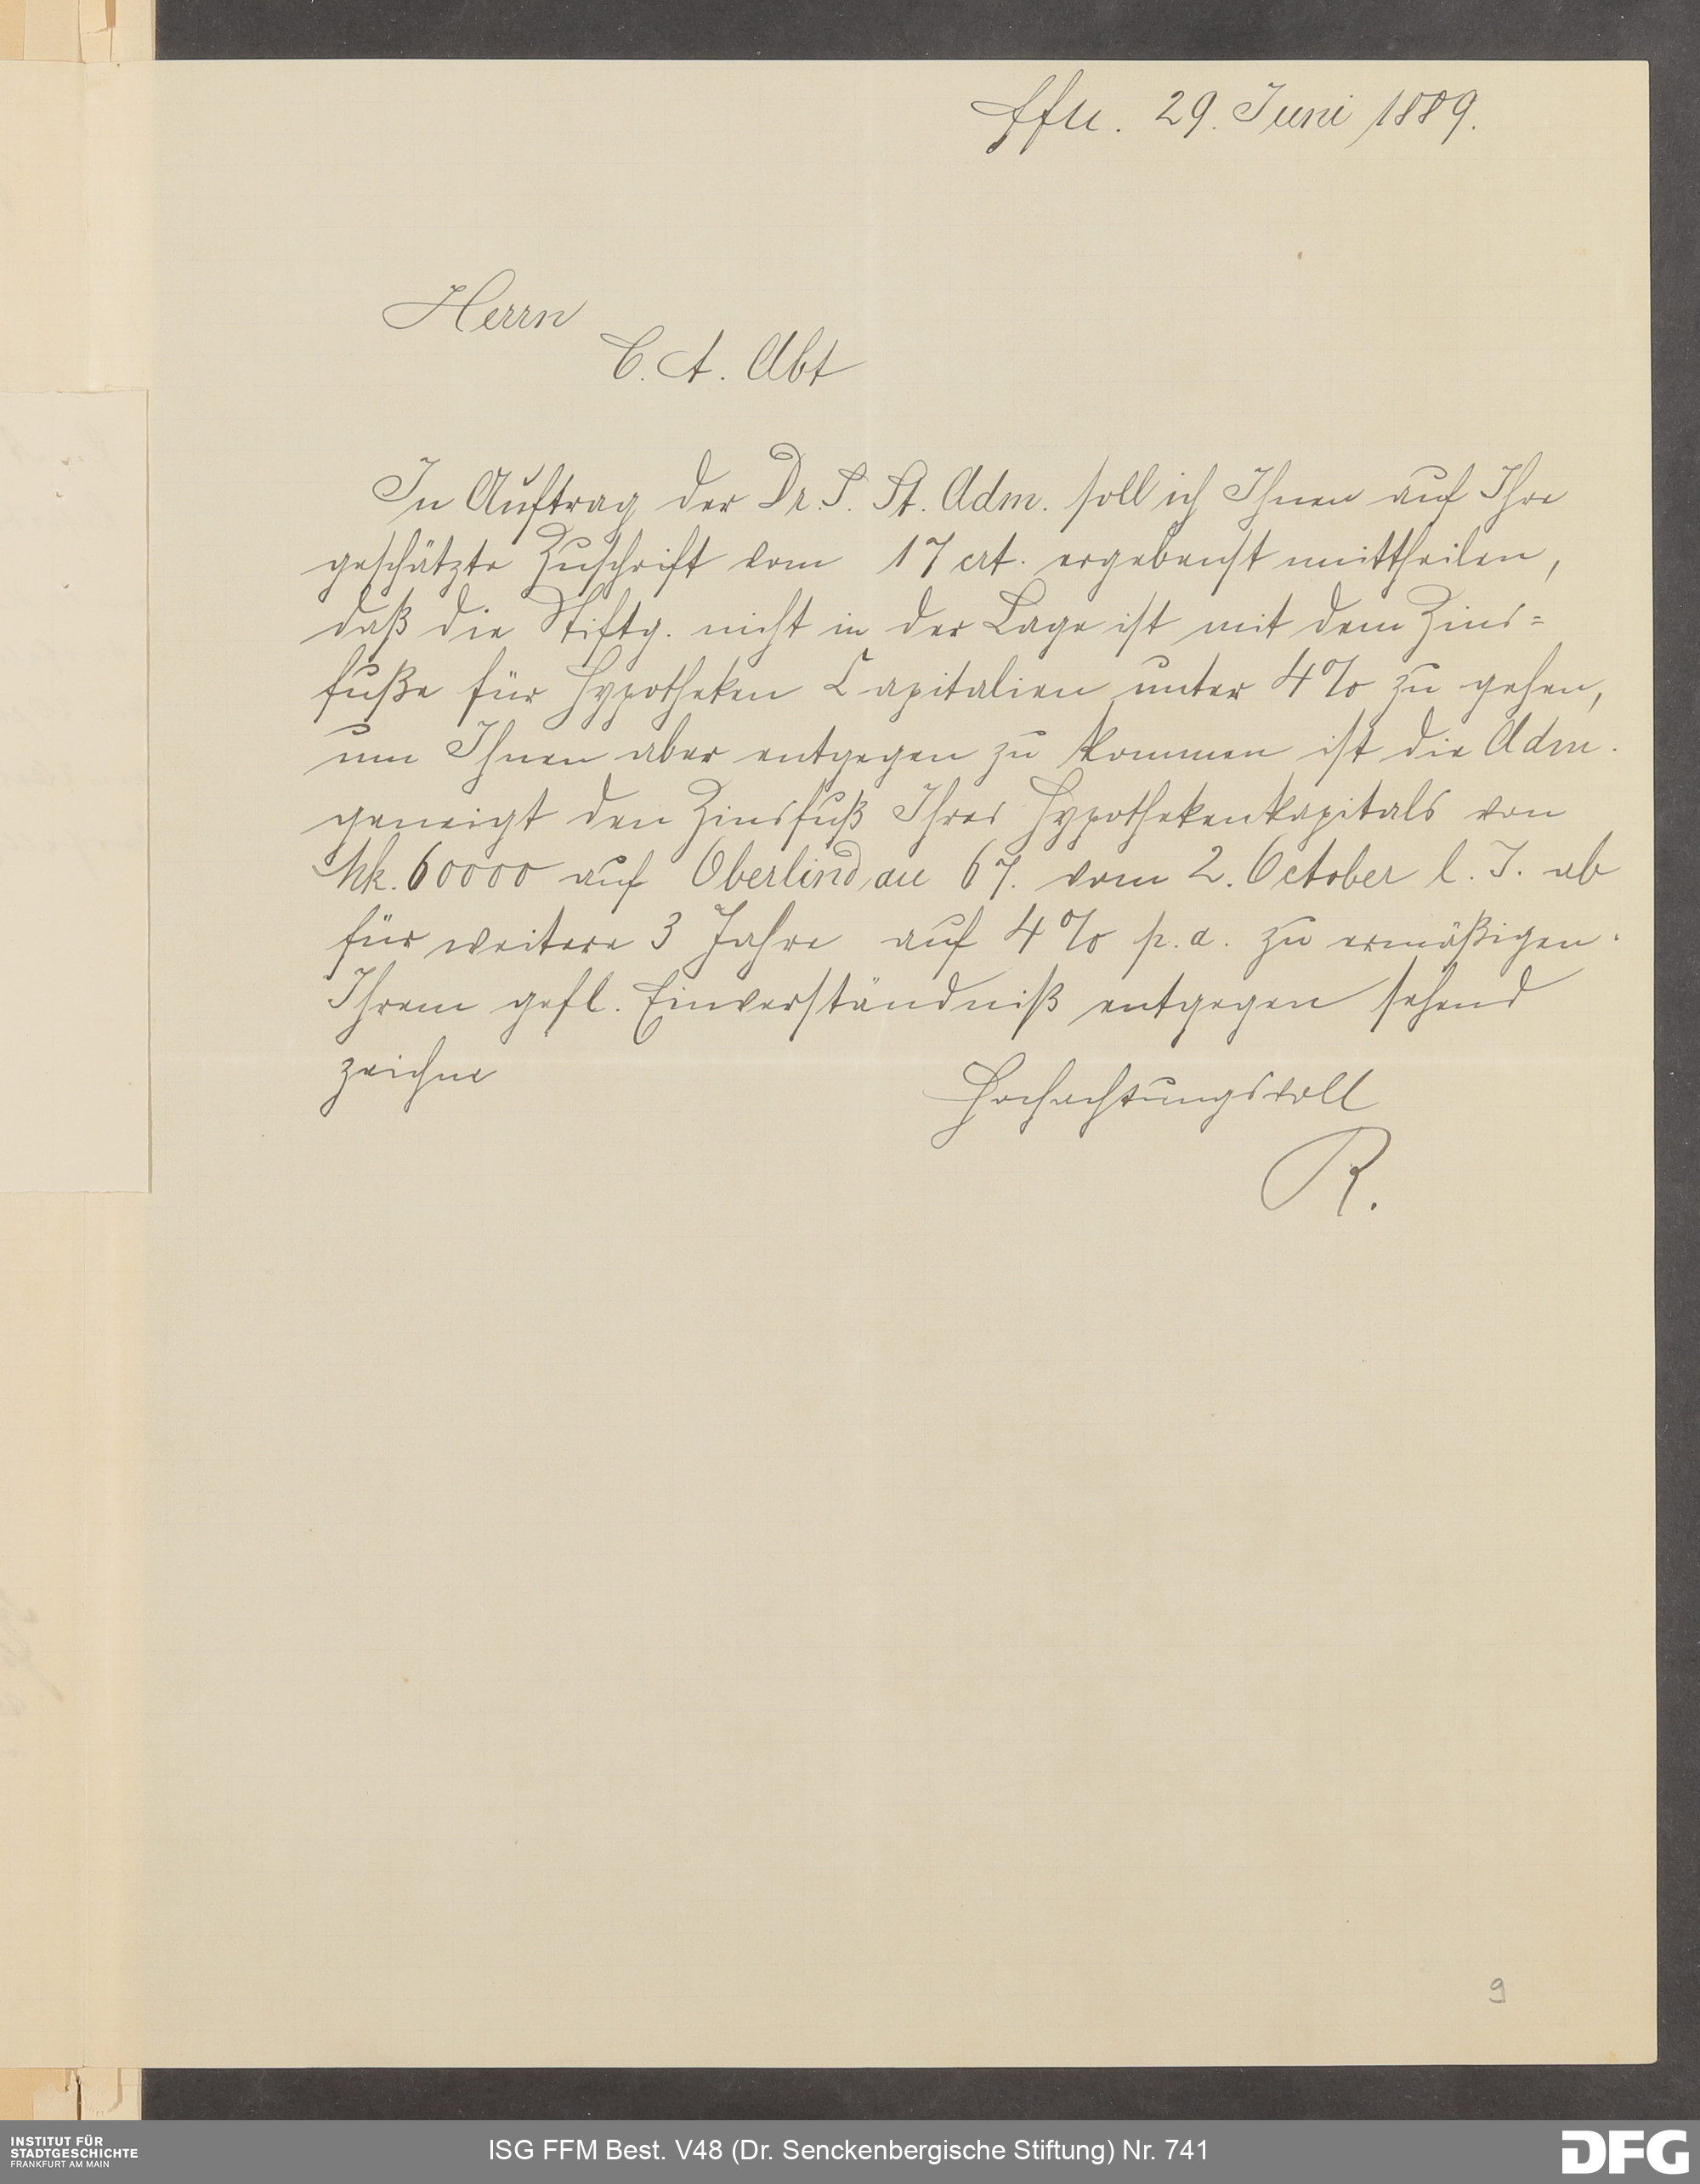 Ffm. 29. Juni 1889.
Herrn
C. A. Abt
In Auftrag der Dr. S. St. Adm. soll ich Ihnen auf Ihre
geschätzte Zuschrift vom 17 crt. ergebenst mittheilen,
daß die Stiftg. nicht in der Lage ist mit dem Zins=
fuße für Hypotheken Capitalien unter 4% zu gehen,
um Ihnen aber entgegen zu kommen ist die Adm.
geneigt den Zinsfuß Ihres Hypothekenkapitals von
Mk. 60000 auf Oberlindau 67. vom 2. October l. J. ab
für weitere 3 Jahre auf 4% p. a. zu ermäßigen.
Ihrem gefl. Einverständniß entgegen sehend
zeichne
Hochachtungsvoll
R.
9
INSTITUT FÜR
STADTGESCHICHTE
FRANKFURT AM MAIN
ISG FFM Best. V48 (Dr. Senckenbergische Stiftung) Nr. 741
DFG